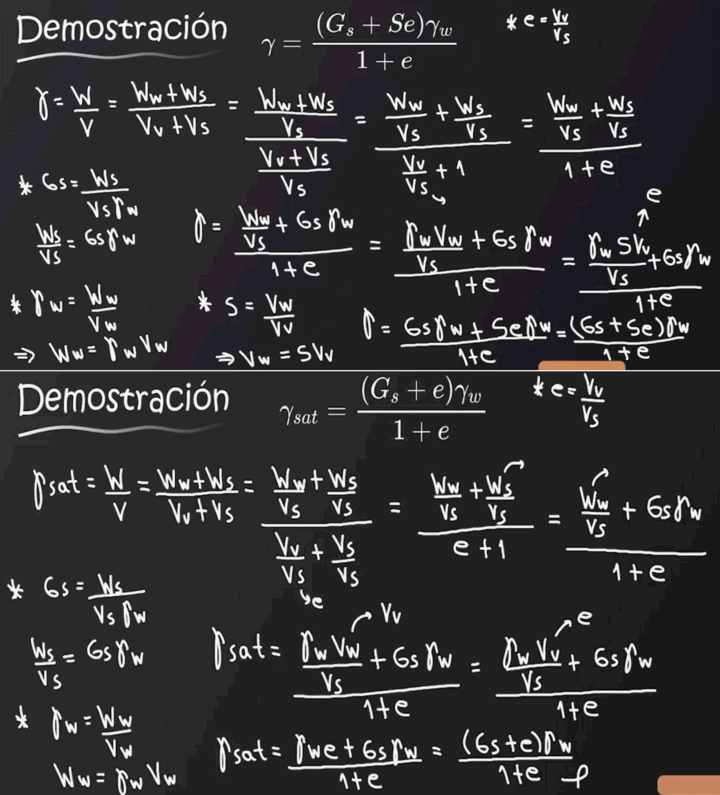 Demostración γ = (G_s + Se)γ_w / (1 + e) * e = Vv/Vs
γ = W/V = (Ww + Ws)/(Vv + Vs) = ((Ww + Ws)/Vs)/((Vv + Vs)/Vs) = (Ww/Vs + Ws/Vs)/(Vv/Vs + 1) = (Ww/Vs + Ws/Vs)/(1 + e)
* Gs = Ws/(Vs γw)
Ws/Vs = Gs γw
γ = (Ww/Vs + Gs γw)/(1 + e) = (γw Vw/Vs + Gs γw)/(1 + e) = (γw S Vv/Vs + Gs γw)/(1 + e) ↑ e
* γw = Ww/Vw
⇒ Ww = γw Vw
* S = Vw/Vv
⇒ Vw = SVv
γ = (Gs γw + Se γw)/(1 + e) = (Gs + Se)γw/(1 + e)
Demostración γ_sat = (G_s + e)γ_w / (1 + e) * e = Vv/Vs
γsat = W/V = (Ww + Ws)/(Vv + Vs) = (Ww/Vs + Ws/Vs)/(Vv/Vs + Vs/Vs) = (Ww/Vs + Ws/Vs)/(e + 1) = (Ww/Vs + Gs γw)/(1 + e)
↳ e
* Gs = Ws/(Vs γw)
Ws/Vs = Gs γw
γsat = (γw Vw/Vs + Gs γw)/(1 + e) = (γw Vv/Vs + Gs γw)/(1 + e)
→ Vv → e
* γw = Ww/Vw
Ww = γw Vw
γsat = (γw e + Gs γw)/(1 + e) = (Gs + e)γw/(1 + e)